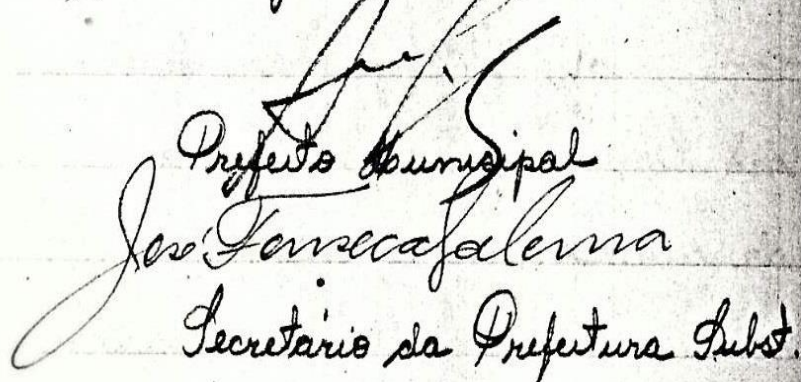 Prefeito Municipal
José Fonseca
Secretário da Prefeitura Subst.